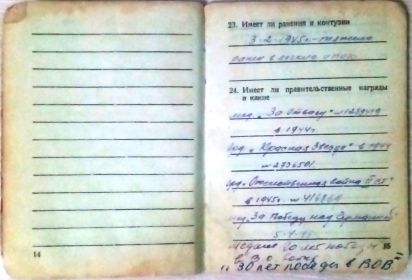 23. Имеет ли ранения и контузии
3-2-1945г. - тяжело
ранен в
24. Имеет ли правительственные награды
и какие
мед. „За отвагу"
в 1944г.
орд. „Красная Звезда" в 1944
№ 2736501
орд. „Отечественная война II ст"
в 1945г. № 416864
мед. За Победу над Германией
5-9-45
Медаль 60 лет
15
14
„30 лет победы в ВОВ"